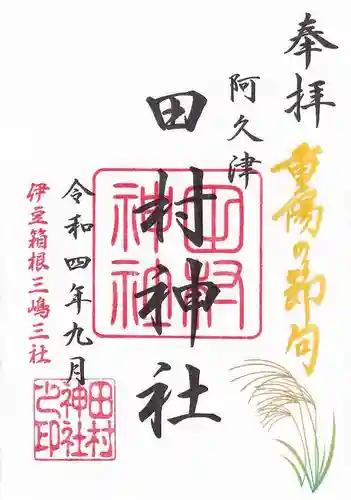 奉拝
重陽の節句
阿久津
田村神社
田村
神社
令和四年九月
伊豆箱根三嶋三社
田村
神社
之印